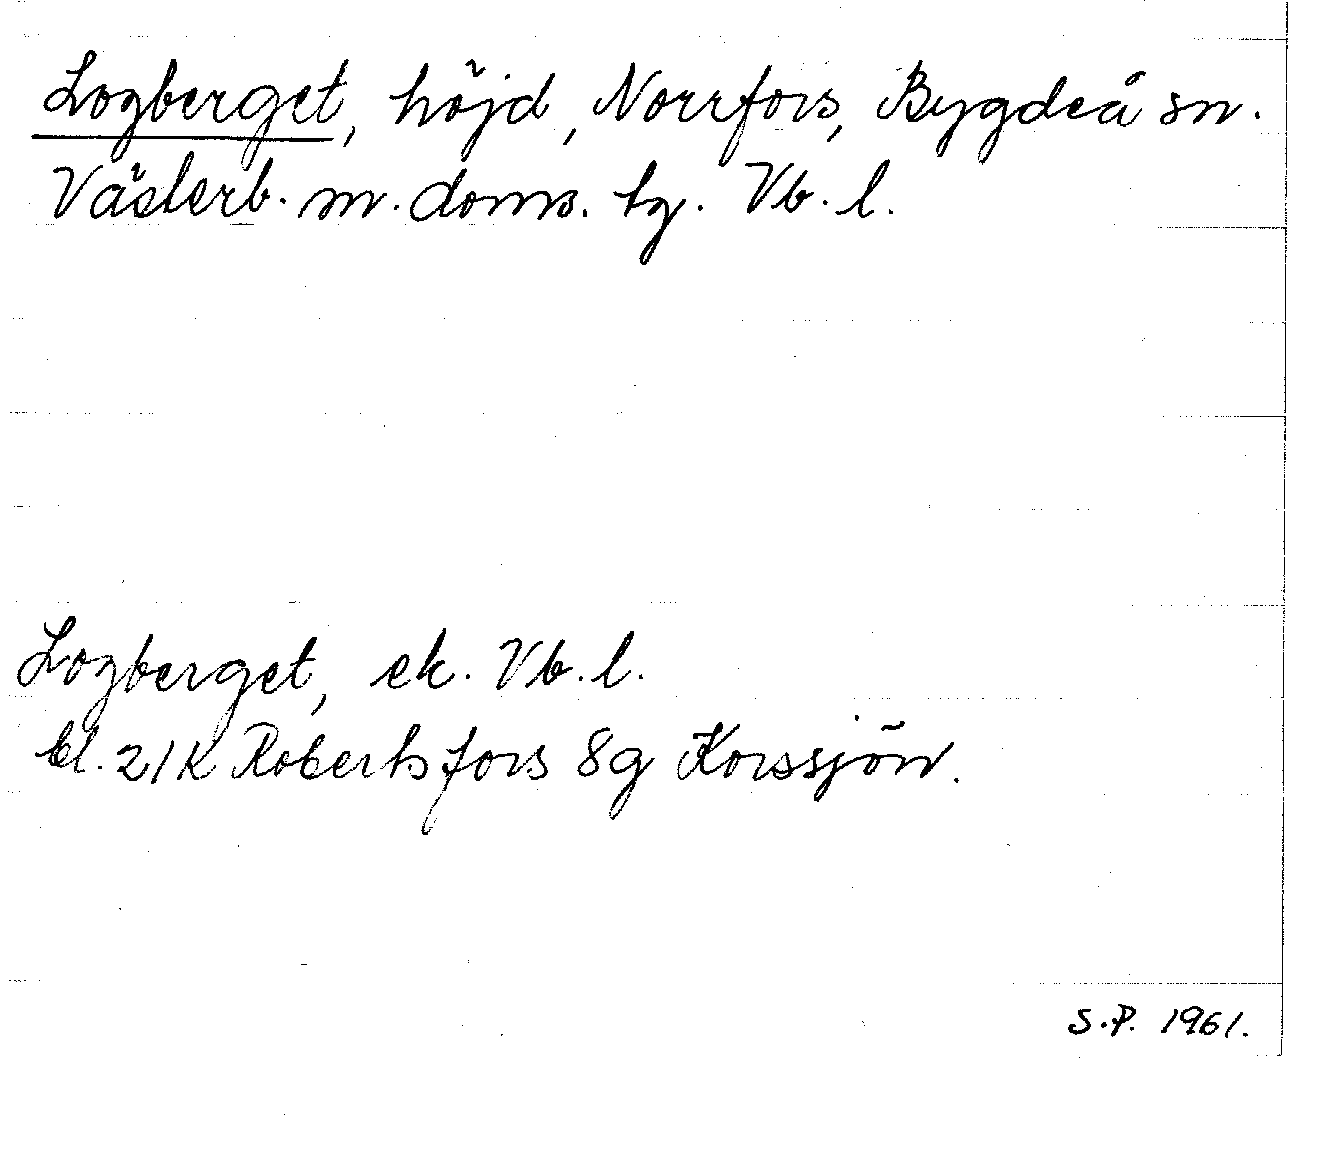 Logberget, höjd, Norrfors, Bygdeå sn.
Västerb. m. doms. tg. Vb. l.
Logberget, ek. Vb. l.
bl. 21K Robertsfors 8g Korssjön.
S.P. 1961.